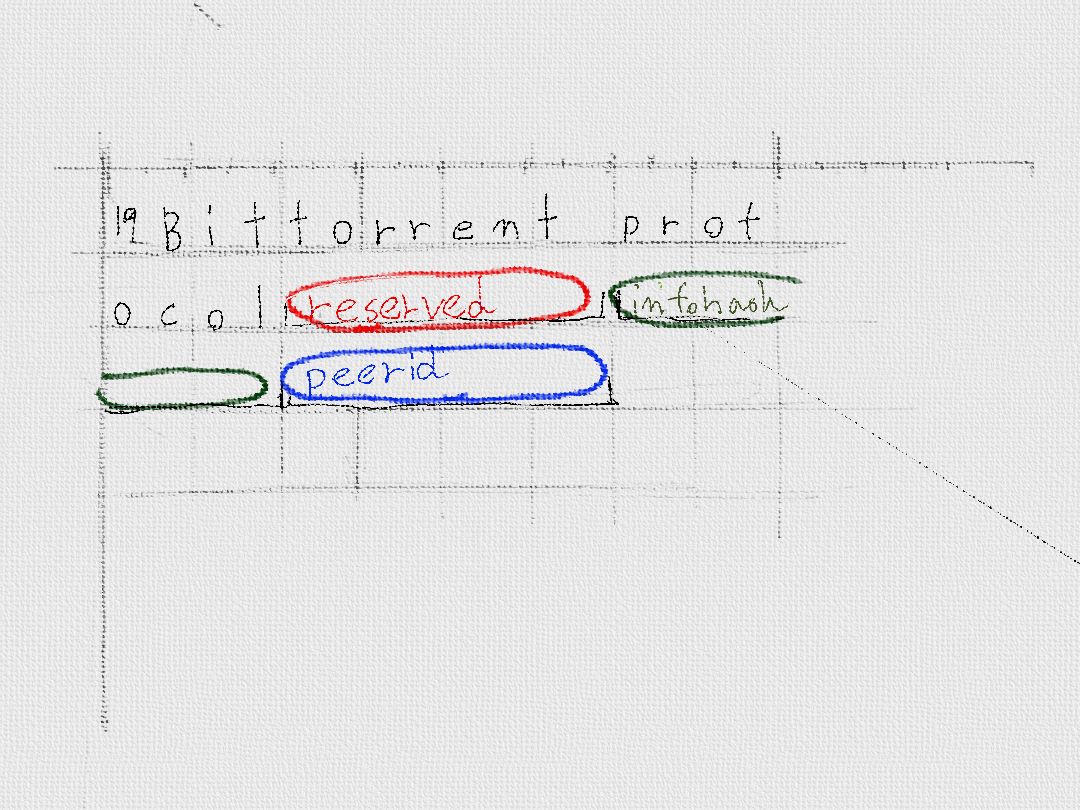 19 B i t t o r r e n t  p r o t
o c o l reserved infohash
peerid